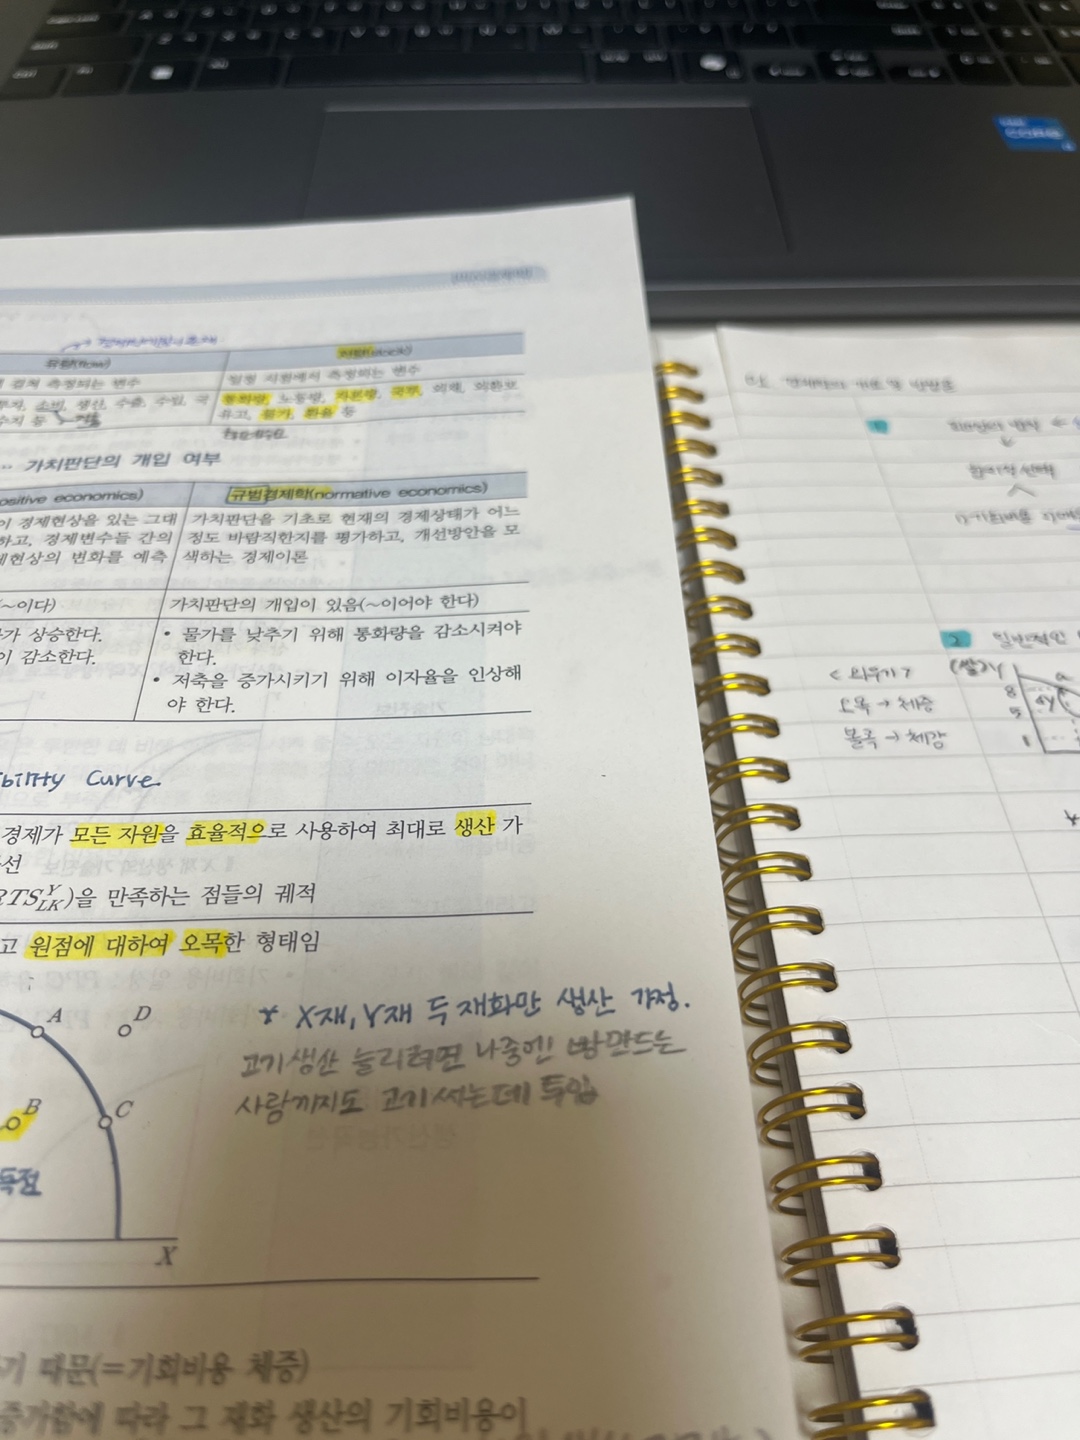 유량(flow)
저량(stock)
걸쳐 측정되는 변수
일정 시점에서 측정되는 변수
투자, 소비, 생산, 수출, 수입, 국
통화량, 노동량, 자본량, 국부, 외채, 외환보
수지 등
유고, 물가, 환율 등
가치판단의 개입 여부
ositive economics)
규범경제학(normative economics)
이 경제현상을 있는 그대
하고, 경제변수들 간의
제현상의 변화를 예측
가치판단을 기초로 현재의 경제상태가 어느
정도 바람직한지를 평가하고, 개선방안을 모
색하는 경제이론
(~이다)
가치판단의 개입이 있음(~이어야 한다)
가 상승한다.
이 감소한다.
• 물가를 낮추기 위해 통화량을 감소시켜야
한다.
• 저축을 증가시키기 위해 이자율을 인상해
야 한다.
ibility Curve.
경제가 모든 자원을 효율적으로 사용하여 최대로 생산 가
선
RTS^Y_LK)을 만족하는 점들의 궤적
고 원점에 대하여 오목한 형태임
A
D
B
C
X
* X재, Y재 두 재화만 생산 가정.
고기생산 늘리려면 나중엔 빵만드는
사람까지도 고기써는데 투입
기 때문(=기회비용 체증)
증가함에 따라 그 재화 생산의 기회비용이
1
합리적 선택
2 일반적인
<외우기>
오목 → 체증
볼록 → 체감
(쌀)Y
8
5
1
a